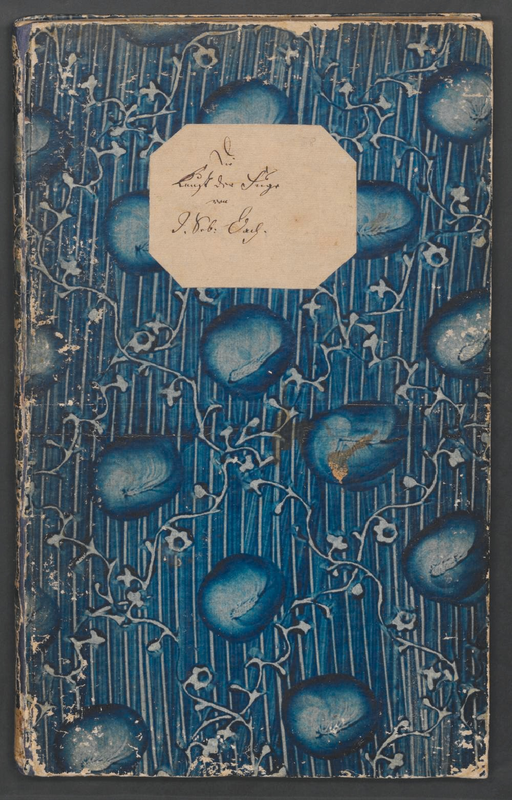 Die
Kunst der Fuge
von
J. Seb: Bach.